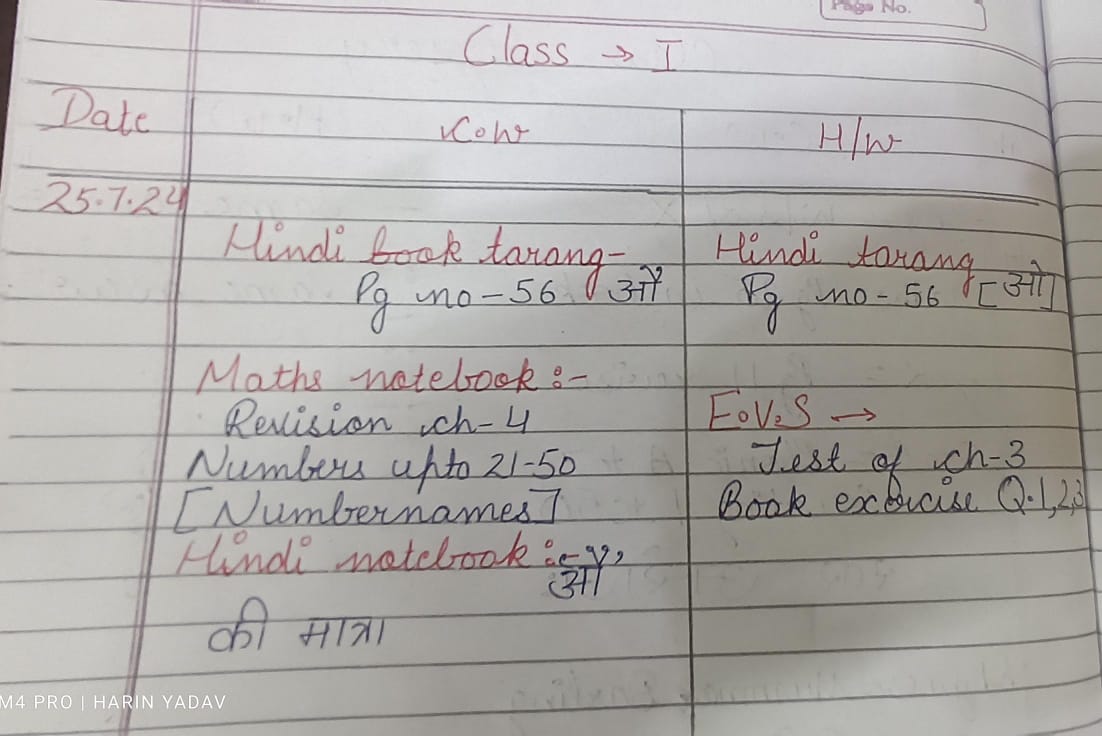 Page No.
Class → I
Date C.W H/W
25.7.24
Hindi book tarang- Hindi tarang
Pg no-56 औ Pg no-56 [ओ]
Maths notebook :-
Revision ch-4 E.V.S →
Numbers upto 21-50 Test of ch-3
[Numbernames] Book exercise Q.1,2,3
Hindi notebook :-
"औ"
की मात्रा
M4 PRO | HARIN YADAV